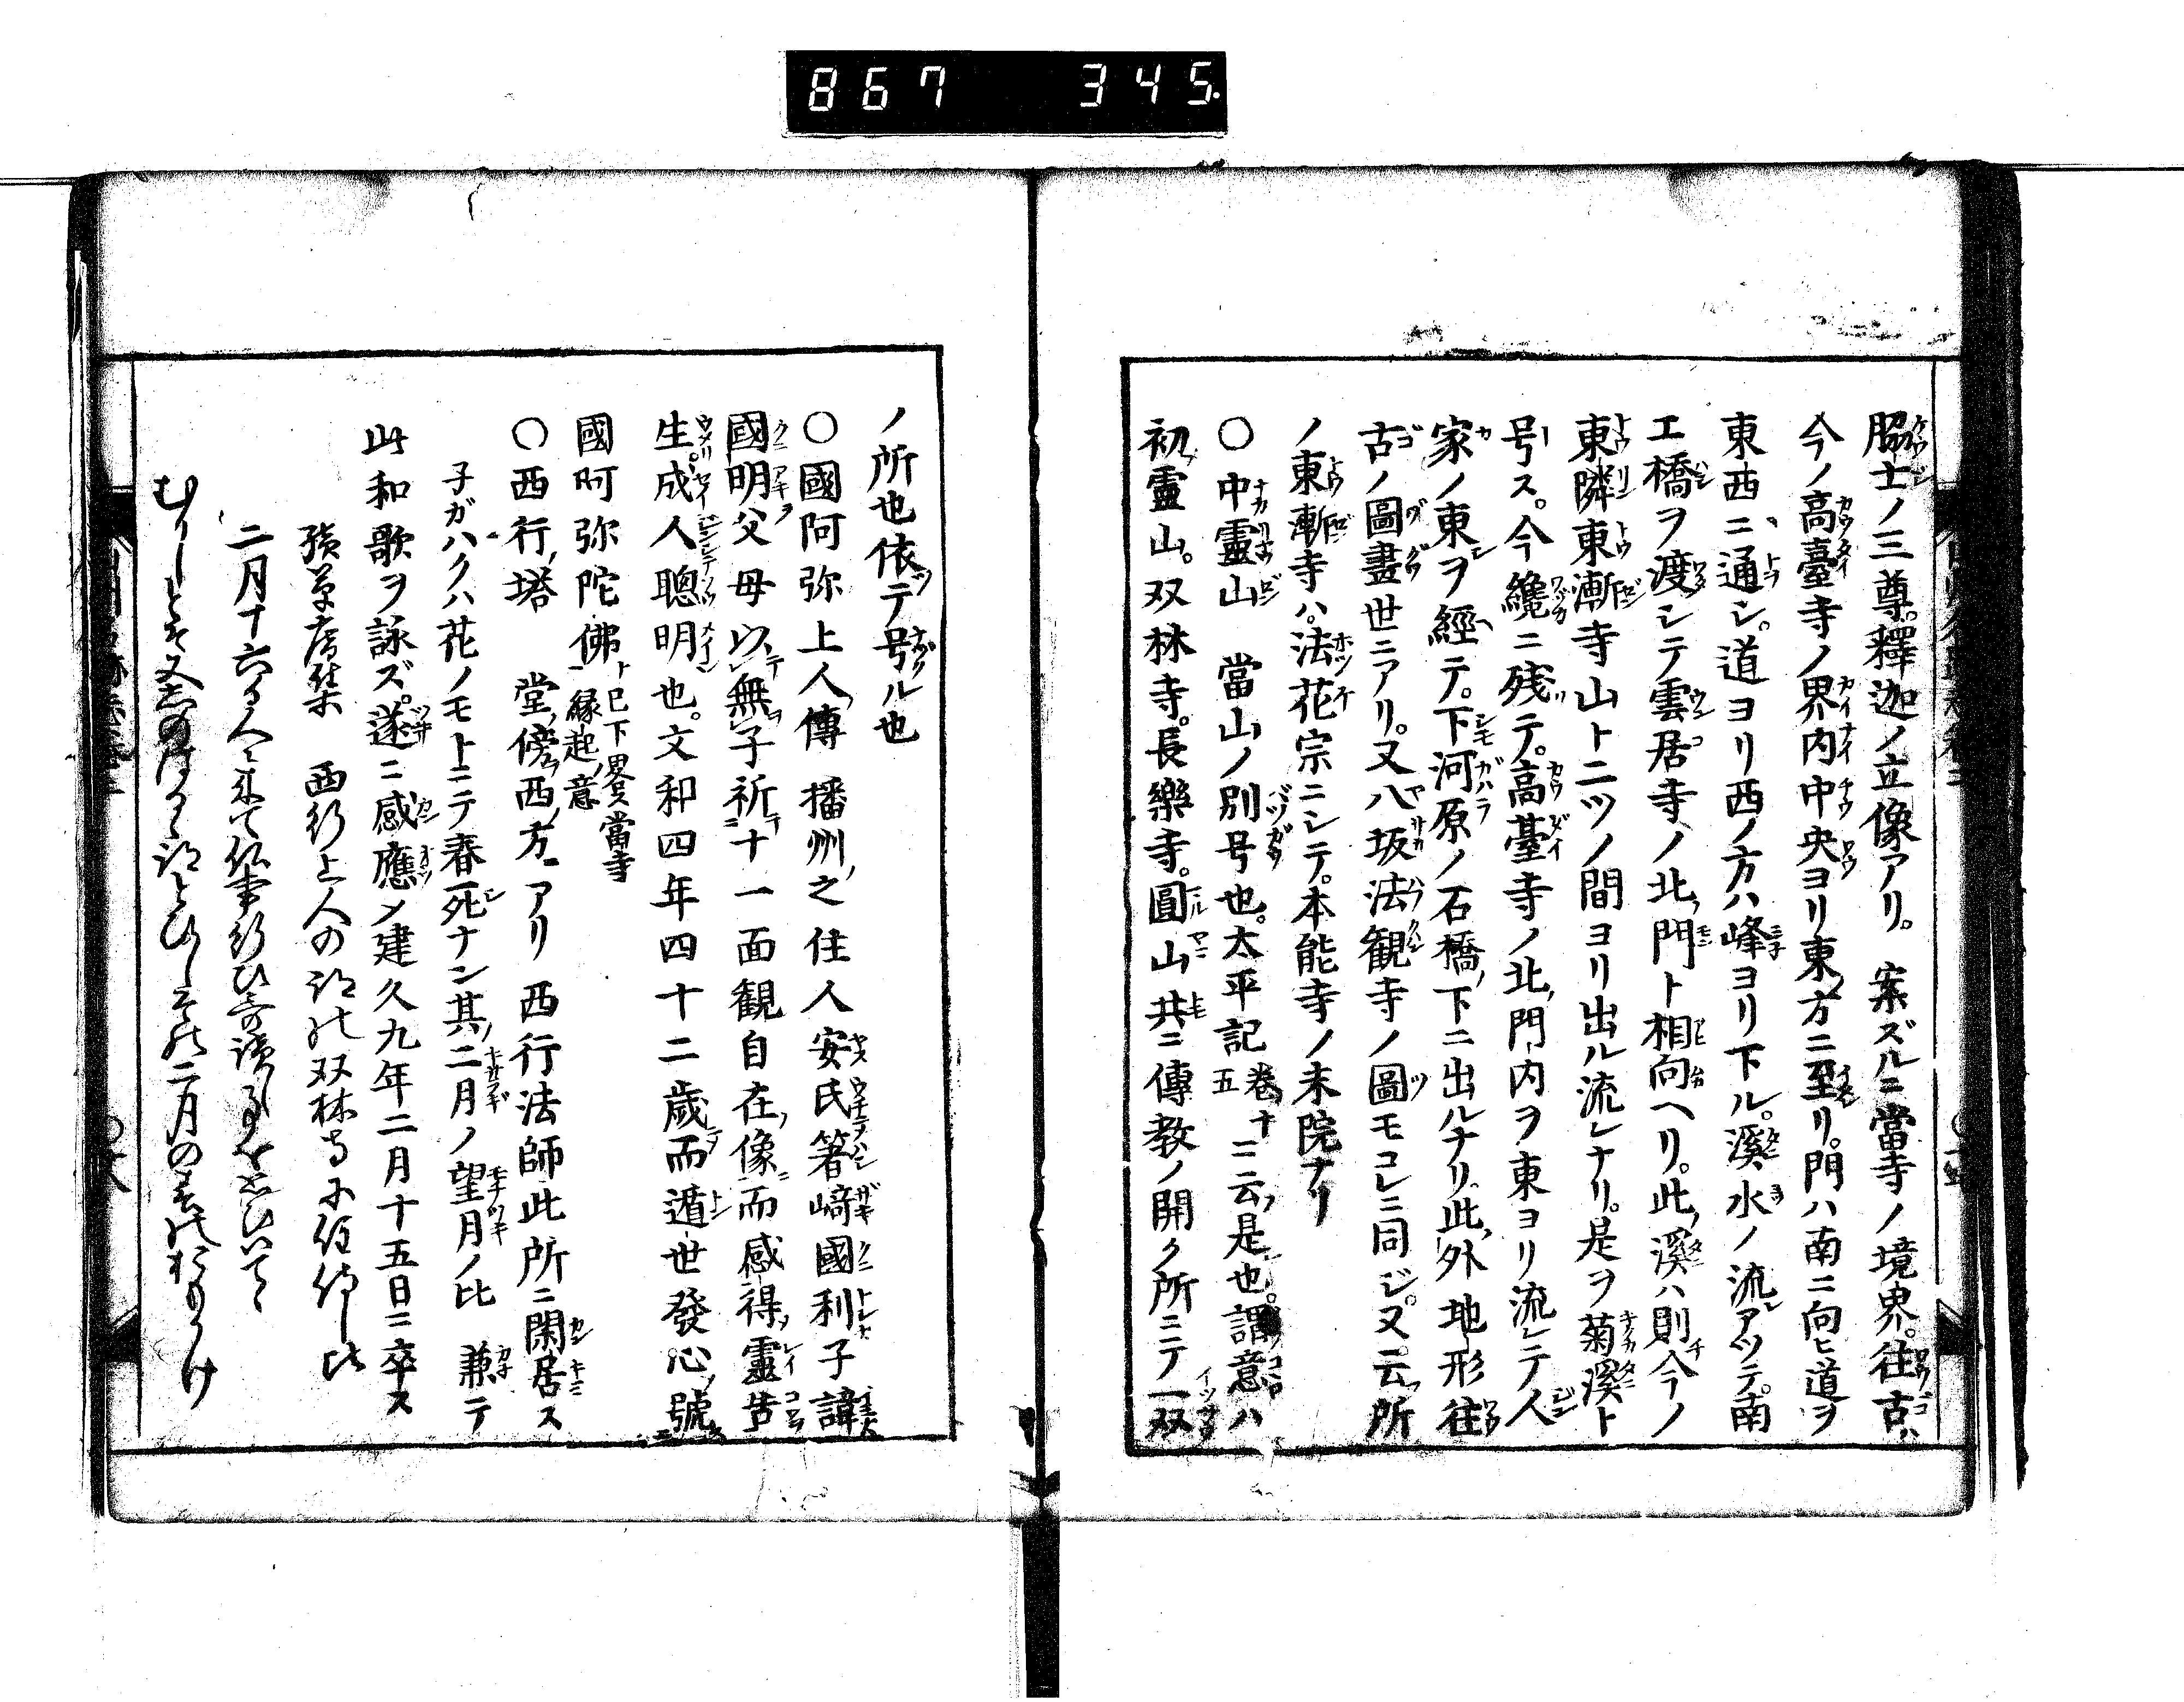 867 345.
脇士ノ三尊釋迦ノ立像アリ。案ズルニ當寺ノ境界。往古ハ
今ノ高臺寺ノ界内中央ヨリ東方ニ至リ。門ハ南ニ向ヒ道ヲ
東西ニ通シ。道ヨリ西ノ方ハ峰ヨリ下ル。溪水ノ流アツテ。南
エ橋ヲ渡シテ雲居寺ノ北門ト相向ヘリ。此溪ハ則今ノ
東隣東漸寺山ト二ツノ間ヨリ出ル流レナリ。是ヲ菊溪ト
号ス。今纔ニ残テ。高臺寺ノ北門内ヲ東ヨリ流レテ人
家ノ東ヲ經テ。下河原ノ石橋下ニ出ルナリ。此外地形往
古ノ圖畫世ニアリ。又八坂法観寺ノ圖モコレニ同ジ。又云所
ノ東漸寺ハ。法花宗ニシテ。本能寺ノ末院ナリ
〇中靈山 當山ノ別号也。太平記巻十五ニ云是也。謂意ハ
初靈山。双林寺。長樂寺。圓山共ニ傳教ノ開ク所ニテ一双
ノ所也依テ号ル也
〇國阿弥上人傳 播州之住人安氏箸﨑國利子諱
國明父母以無子祈十一面観自在像而感得靈告
生。成人聰明也。文和四年四十二歳而遁世發心號
國阿弥陀佛ト已下畧ス當寺縁起ノ意
〇西行塔 堂傍西方ニアリ 西行法師此所ニ閑居ス
子ガハクハ花ノモトニテ春死ナン其二月ノ望月ノ比 兼テ
此和歌ヲ詠ズ。遂ニ感應ノ建久九年二月十五日ニ卒ス
續草庵集 西行上人の跡の双林寺に住侍し比
二月十六日人々来て仏事行ひ哥讀
二月の